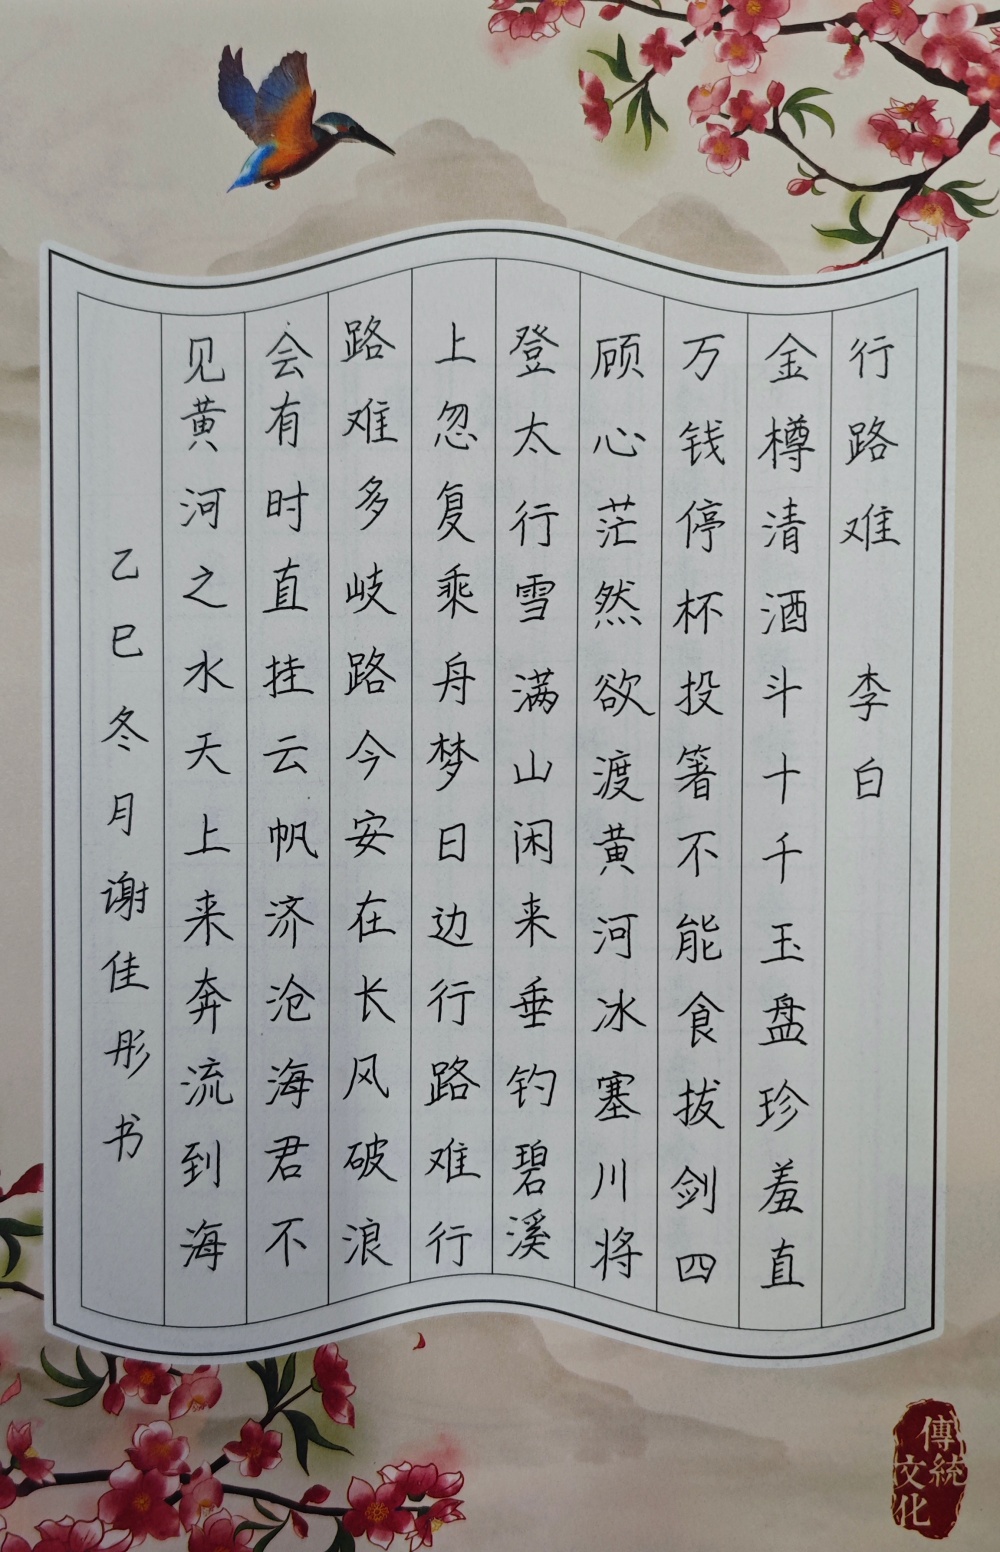 行路难 李白
金樽清酒斗十千玉盘珍羞直
万钱停杯投箸不能食拔剑四
顾心茫然欲渡黄河冰塞川将
登太行雪满山闲来垂钓碧溪
上忽复乘舟梦日边行路难行
路难多歧路今安在长风破浪
会有时直挂云帆济沧海君不
见黄河之水天上来奔流到海
乙巳冬月谢佳彤书
傳統
文化